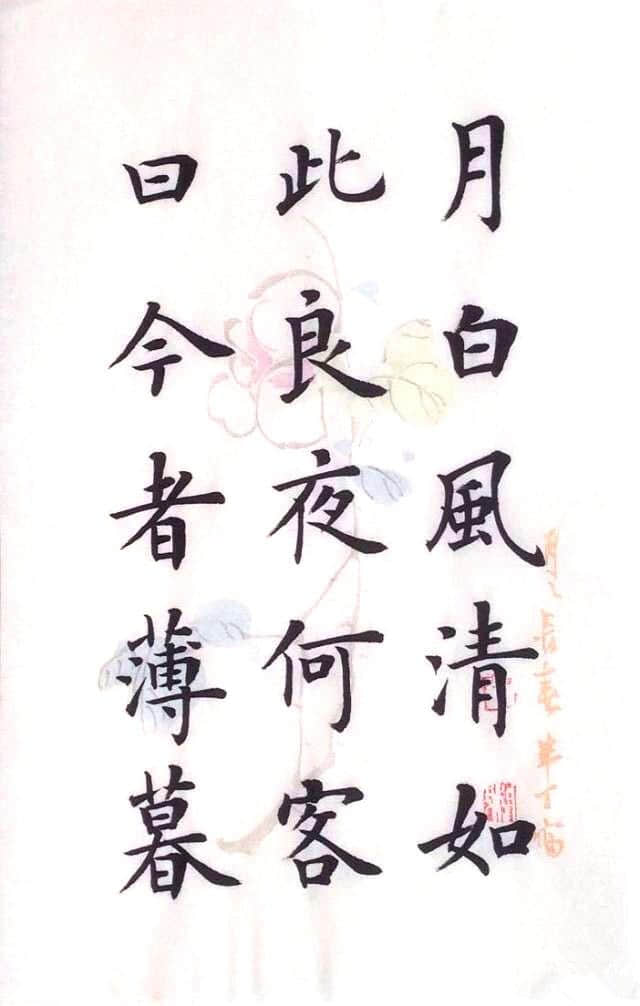 月白風清如
此良夜何客
曰今者薄暮